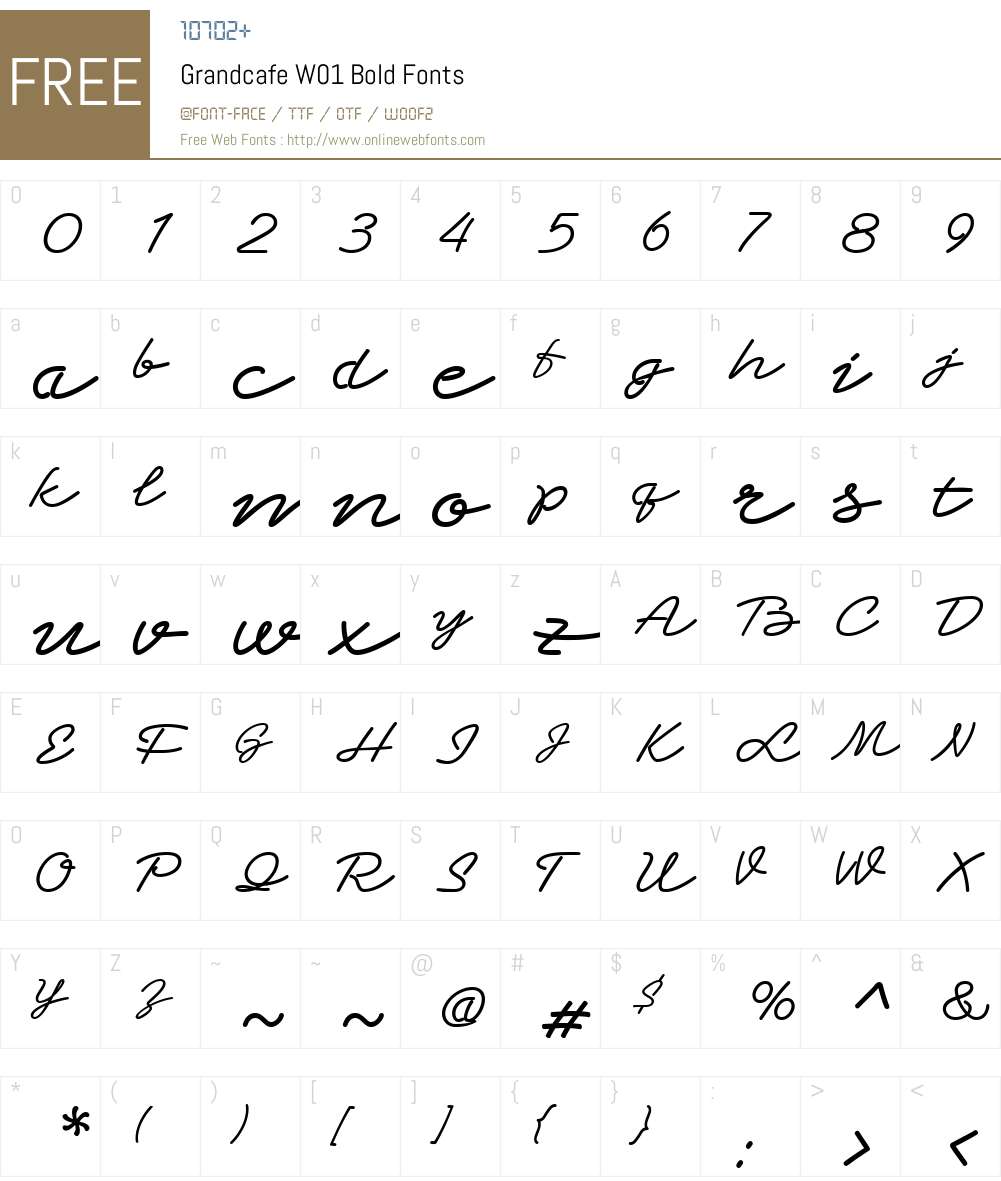 FREE
10702+
Grandcafe W01 Bold Fonts
@FONT-FACE / TTF / OTF / WOOF2
Free Web Fonts : http://www.onlinewebfonts.com
0 1 2 3 4 5 6 7 8 9
0 1 2 3 4 5 6 7 8 9
a b c d e f g h i j
a b c d e f g h i j
k l m n o p q r s t
k l m n o p q r s t
u v w x y z A B C D
u v w x y z A B C D
E F G H I J K L M N
E F G H I J K L M N
O P Q R S T U V W X
O P Q R S T U V W X
Y Z ~ ~ @ # $ % ^ &
Y Z ~ ~ @ # $ % ^ &
* ( ) [ ] { } : > <
* ( ) [ ] { } : > <